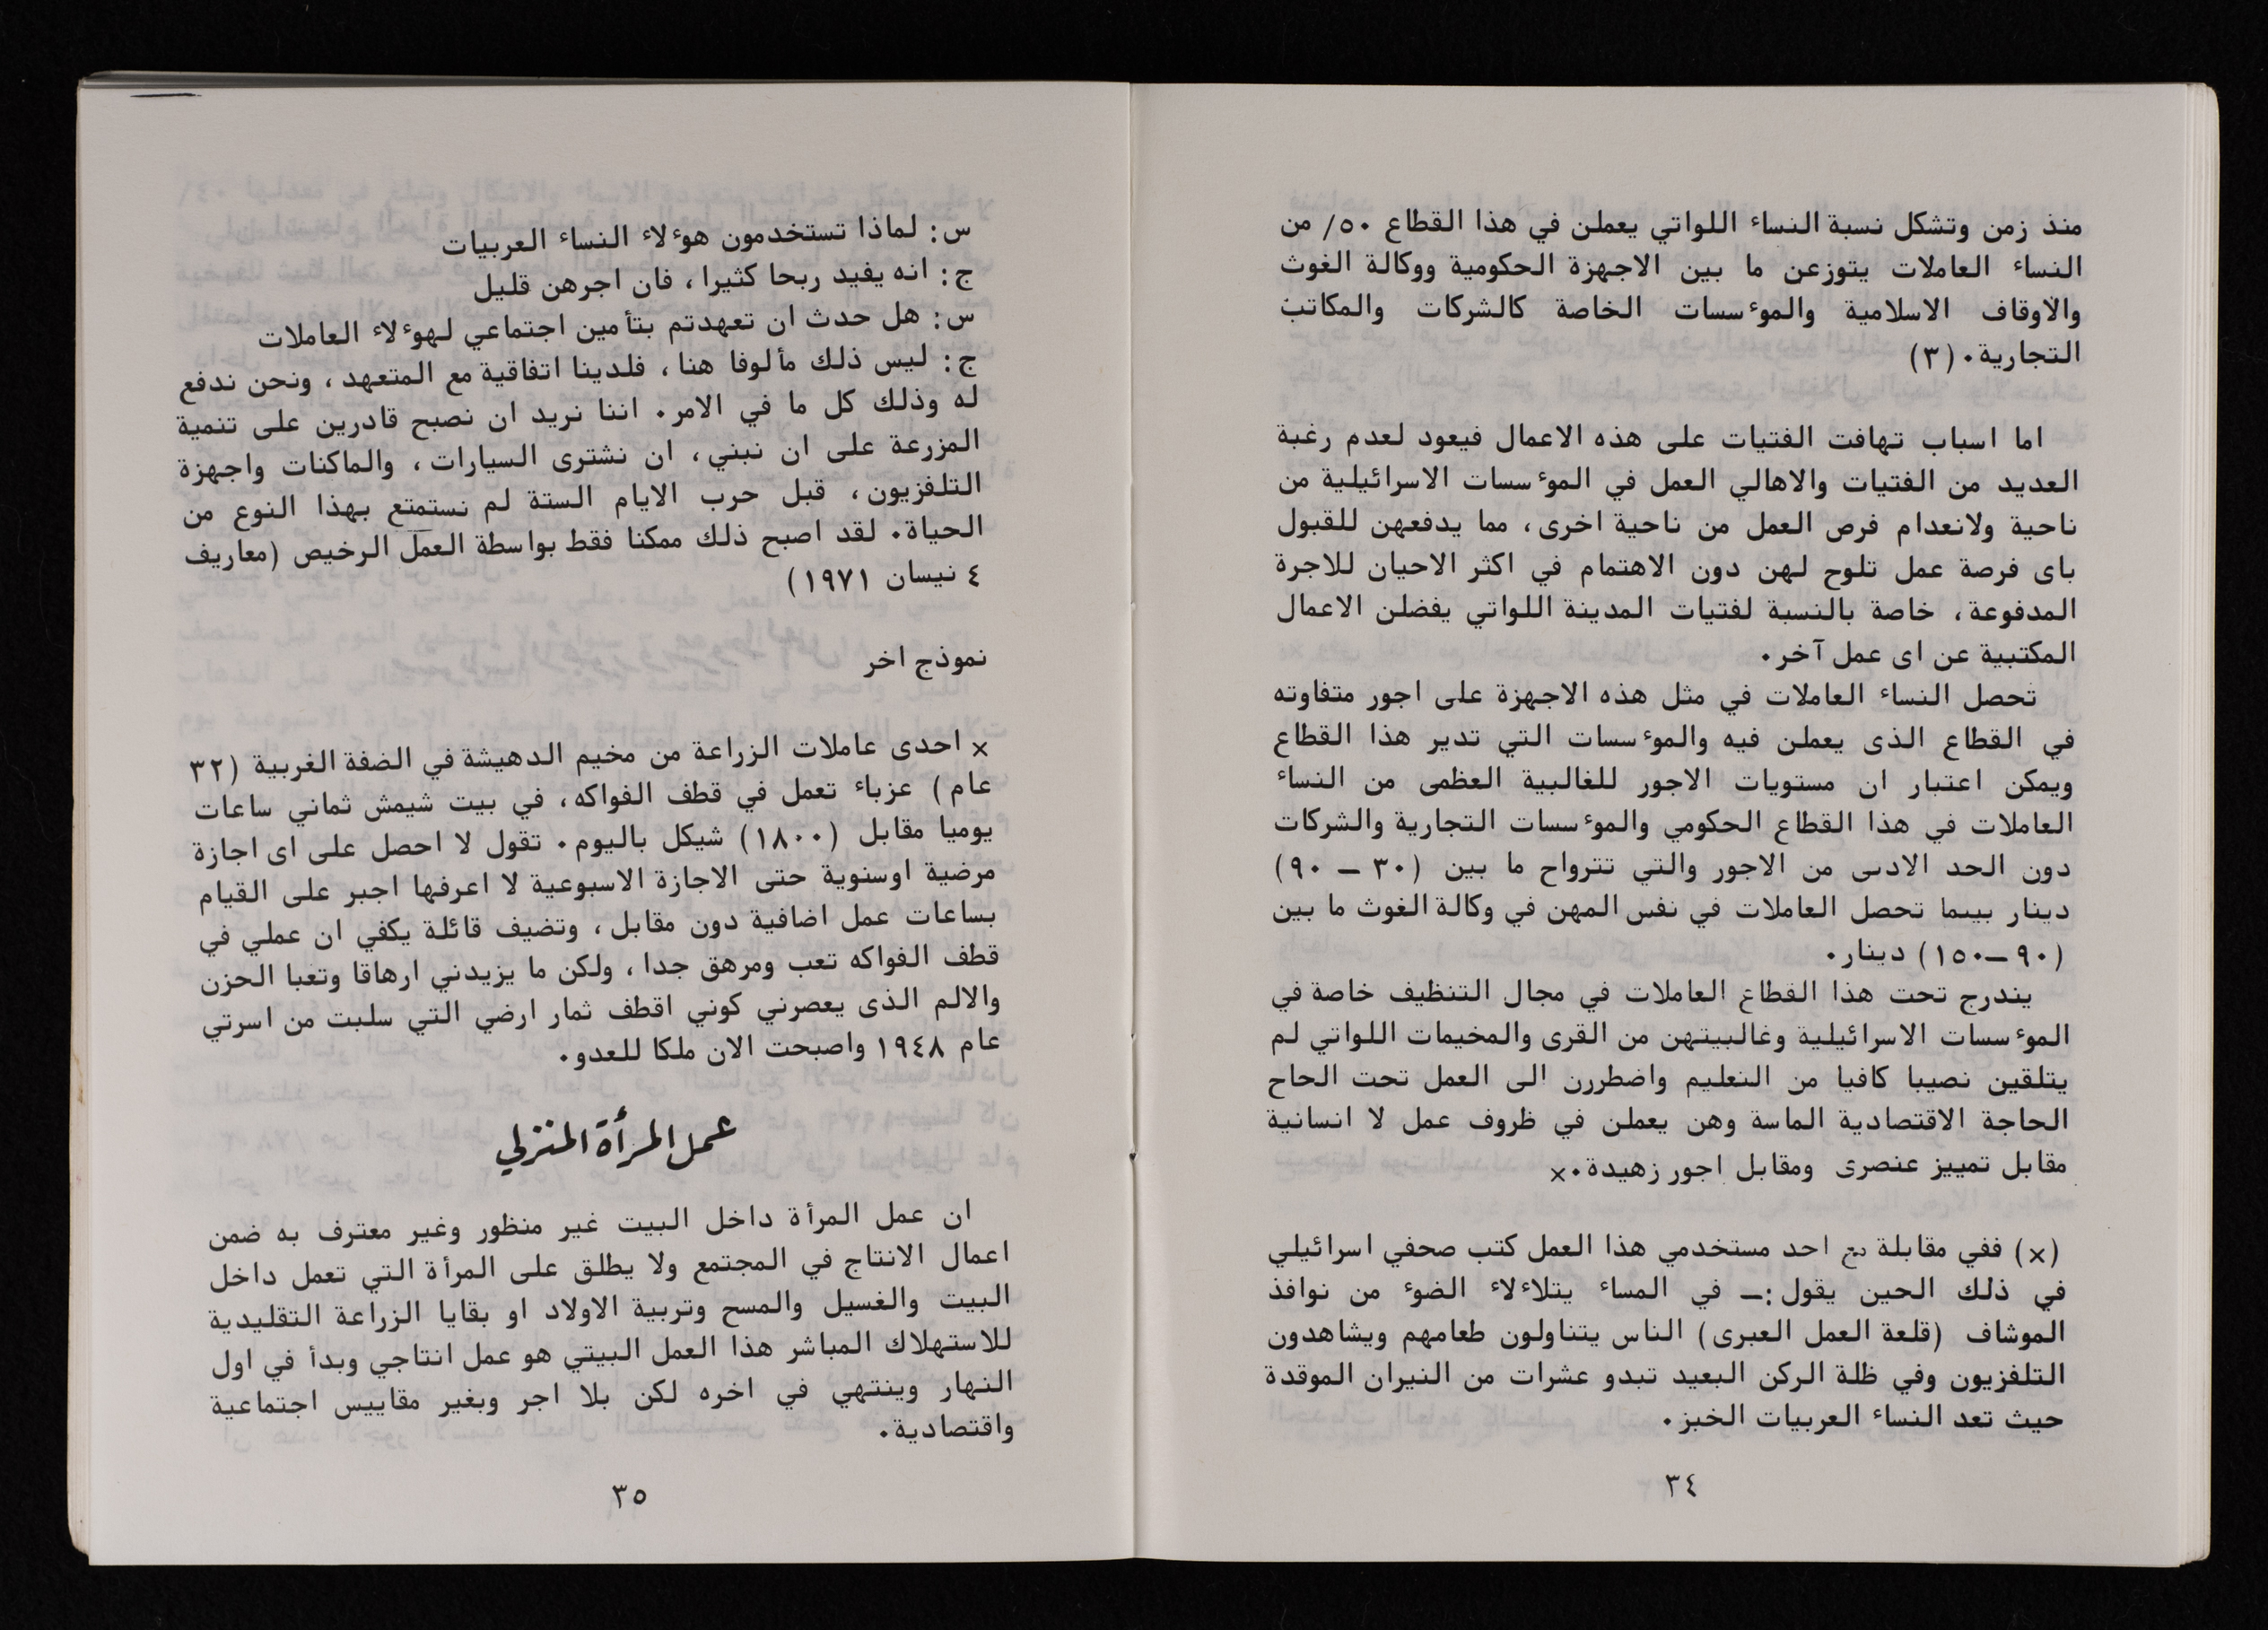 منذ زمن وتشكل نسبة النساء اللواتي يعملن في هذا القطاع ٥٠/ من
النساء العاملات يتوزعن ما بين الاجهزة الحكومية ووكالة الغوث
والاوقاف الاسلامية والموءسسات الخاصة كالشركات والمكاتب
التجارية. (٣)
اما اسباب تهافت الفتيات على هذه الاعمال فيعود لعدم رغبة
العديد من الفتيات والاهالي العمل في الموءسسات الاسرائيلية من
ناحية ولانعدام فرص العمل من ناحية اخرى، مما يدفعهن للقبول
باى فرصة عمل تلوح لهن دون الاهتمام في اكثر الاحيان للاجرة
المدفوعة، خاصة بالنسبة لفتيات المدينة اللواتي يفضلن الاعمال
المكتبية عن اى عمل آخر.
تحصل النساء العاملات في مثل هذه الاجهزة على اجور متفاوته
في القطاع الذى يعملن فيه والموءسسات التي تدير هذا القطاع
ويمكن اعتبار ان مستويات الاجور للغالبية العظمى من النساء
العاملات في هذا القطاع الحكومي والموءسسات التجارية والشركات
دون الحد الادنى من الاجور والتي تترواح ما بين (٣٠ – ٩٠)
دينار بينما تحصل العاملات في نفس المهن في وكالة الغوث ما بين
(٩٠–١٥٠) دينار.
يندرج تحت هذا القطاع العاملات في مجال التنظيف خاصة في
الموءسسات الاسرائيلية وغالبيتهن من القرى والمخيمات اللواتي لم
يتلقين نصيبا كافيا من التعليم واضطررن الى العمل تحت الحاح
الحاجة الاقتصادية الماسة وهن يعملن في ظروف عمل لا انسانية
مقابل تمييز عنصرى ومقابل اجور زهيدة.×
(×) ففي مقابلة مع احد مستخدمي هذا العمل كتب صحفي اسرائيلي
في ذلك الحين يقول:– في المساء يتلاءلاء الضوء من نوافذ
الموشاف (قلعة العمل العبرى) الناس يتناولون طعامهم ويشاهدون
التلفزيون وفي ظلة الركن البعيد تبدو عشرات من النيران الموقدة
حيث تعد النساء العربيات الخبز.
٣٤
س: لماذا تستخدمون هوءلاء النساء العربيات
ج: انه يفيد ربحا كثيرا، فان اجرهن قليل
س: هل حدث ان تعهدتم بتأمين اجتماعي لهوءلاء العاملات
ج: ليس ذلك مألوفا هنا، فلدينا اتفاقية مع المتعهد، ونحن ندفع
له وذلك كل ما في الامر. اننا نريد ان نصبح قادرين على تنمية
المزرعة على ان نبني، ان نشترى السيارات، والماكنات واجهزة
التلفزيون، قبل حرب الايام الستة لم نستمتع بهذا النوع من
الحياة. لقد اصبح ذلك ممكنا فقط بواسطة العمل الرخيص (معاريف
٤ نيسان ١٩٧١)
نموذج اخر
× احدى عاملات الزراعة من مخيم الدهيشة في الضفة الغربية (٣٢
عام) عزباء تعمل في قطف الفواكه، في بيت شيمش ثماني ساعات
يوميا مقابل (١٨٠٠) شيكل باليوم. تقول لا احصل على اى اجازة
مرضية اوسنوية حتى الاجازة الاسبوعية لا اعرفها اجبر على القيام
بساعات عمل اضافية دون مقابل، وتضيف قائلة يكفي ان عملي في
قطف الفواكه تعب ومرهق جدا، ولكن ما يزيدني ارهاقا وتعبا الحزن
والالم الذى يعصرني كوني اقطف ثمار ارضي التي سلبت من اسرتي
عام ١٩٤٨ واصبحت الان ملكا للعدو.
عمل المرأة المنزلي
ان عمل المرأة داخل البيت غير منظور وغير معترف به ضمن
اعمال الانتاج في المجتمع ولا يطلق على المرأة التي تعمل داخل
البيت والغسيل والمسح وتربية الاولاد او بقايا الزراعة التقليدية
للاستهلاك المباشر هذا العمل البيتي هو عمل انتاجي وبدأ في اول
النهار وينتهي في اخره لكن بلا اجر وبغير مقاييس اجتماعية
واقتصادية.
٣٥